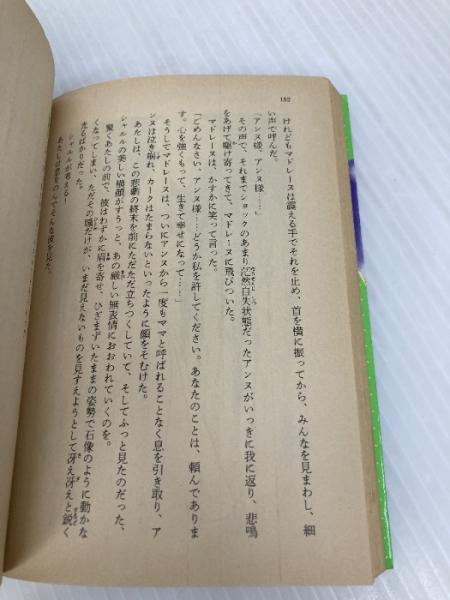 152
けれどもマドレーヌは震える手でそれを止め、首を横に振ってから、みんなを見まわし、細
い声で呼んだ。
「アンヌ様、アンヌ様……」
その声で、それまでショックのあまり茫然自失状態だったアンヌがいっきに我に返り、悲鳴
をあげて駆け寄ってきて、マドレーヌに飛びついた。
マドレーヌは、かすかに笑って言った。
「ごめんなさい、アンヌ様……どうか私を許してください。あなたのことは、頼んでありま
す。心を強くもって、生きて幸せになって……」
そうしてマドレーヌは、ついにアンヌから一度もママと呼ばれることなく息を引き取り、ア
ンヌは泣き崩れ、カークはたまらないといったように顔をそむけた。
あたしは、この悲劇の終末を前にただただ立ちつくしていて、そしてふっと見たのだった、
シャルルの美しい横顔がすうっと、あの厳しい無表情におおわれていくのを。
驚くあたしの前で、彼はわずかに眉を寄せ、ひざまずいたままの姿勢で石像のように動かな
くなってしまい、ただその瞳だけが、いまだ見えないものを見すえようとして冴え冴えと鋭く
光るばかりだった。
シャルルが考える！
あたしは息をのんでそんな彼を見た。